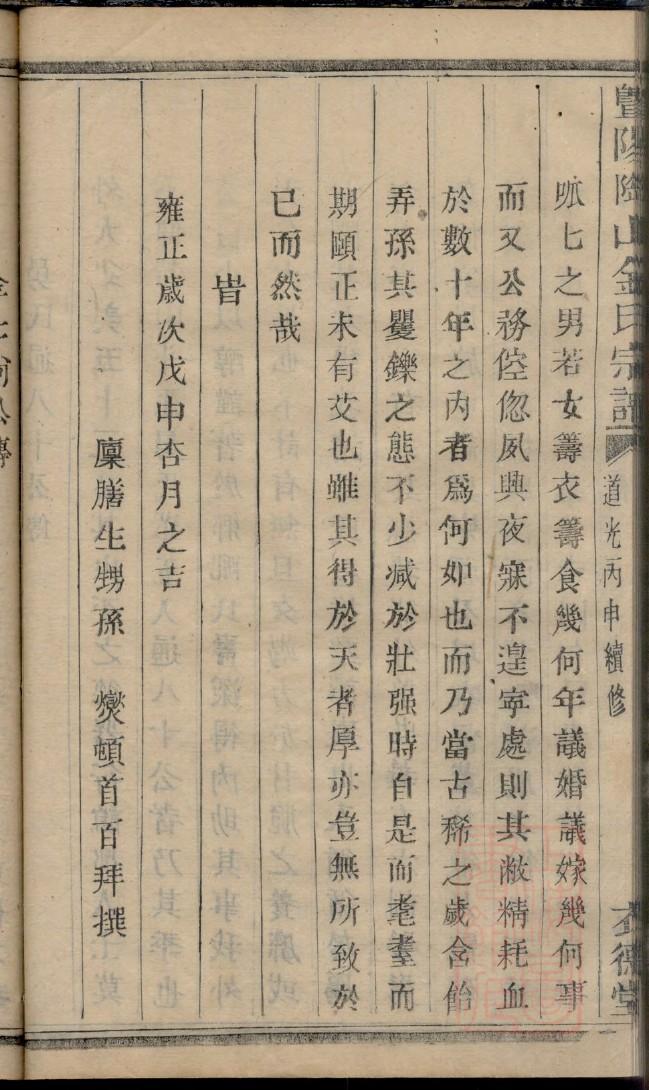 暨陽陰山金氏宗譜
道光丙申續修
衣德堂
呱匕之男若女籌衣籌食幾何年議婚議嫁幾何事
而又公務倥傯夙興夜寐不遑寧處則其敝精耗血
於數十年之內者爲何如也而乃當古稀之歲含飴
弄孫其矍鑠之態不少減於壯强時自是而耄耋而
期頤正未有艾也雖其得於天者厚亦豈無所致於
已而然哉
旹
雍正歲次戊申杏月之吉
廩膳生甥孫 爕頓首百拜撰